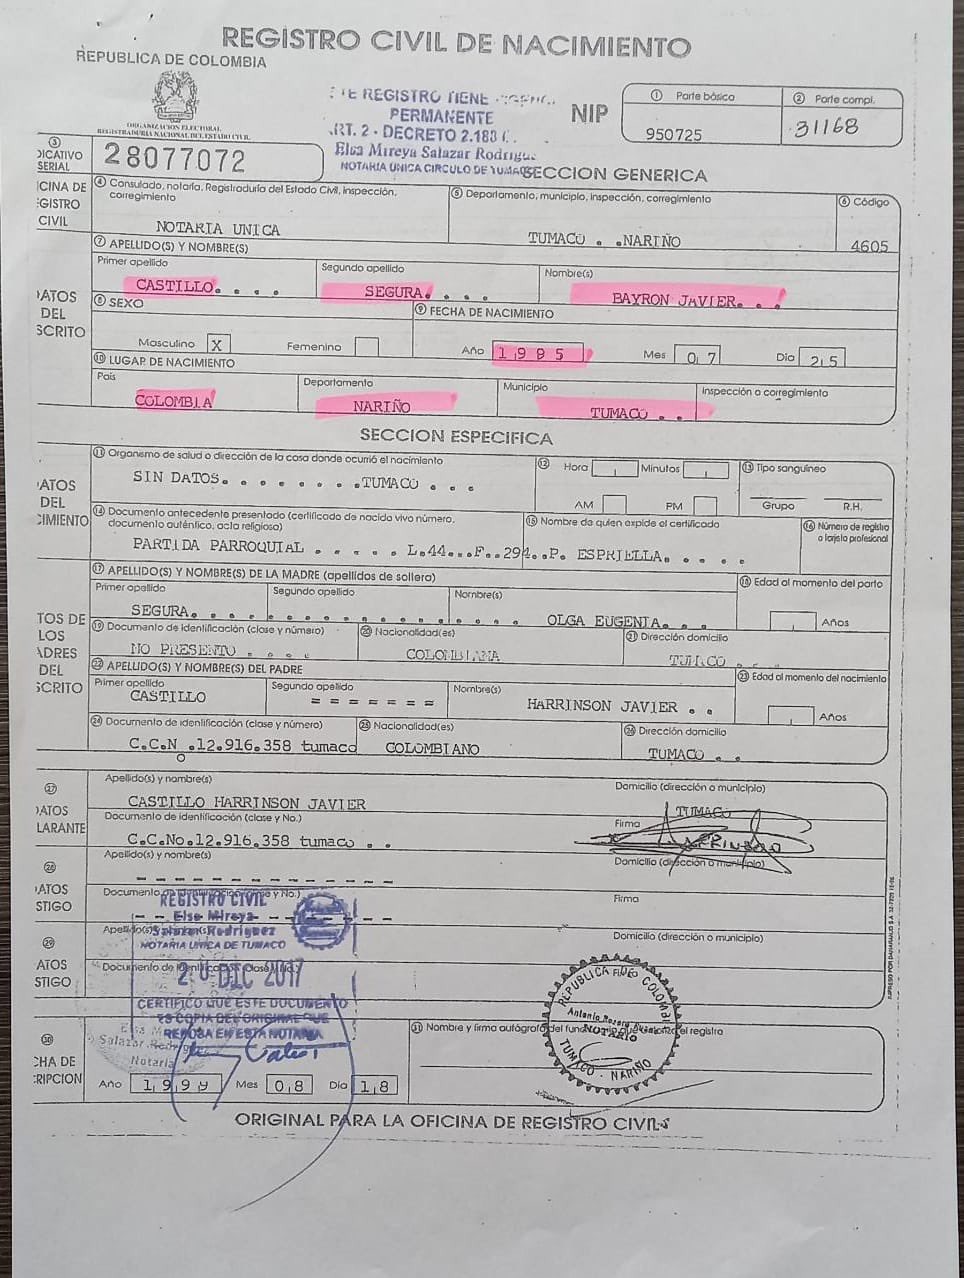 REGISTRO CIVIL DE NACIMIENTO
REPUBLICA DE COLOMBIA
ORGANIZACION ELECTORAL
REGISTRADURIA NACIONAL DEL ESTADO CIVIL
TE REGISTRO TIENE
PERMANENTE
ART. 2 - DECRETO 2.188
Elsa Mireya Salazar Rodrigue
NOTARIA UNICA CIRCULO DE TUMACO
NIP
1 Parte básica
950725
2 Parte compl.
31168
3
DICATIVO
SERIAL
28077072
SECCION GENERICA
ICINA DE
EGISTRO
CIVIL
4 Consulado, notaría, Registraduría del Estado Civil, inspección, corregimiento
NOTARIA UNICA
5 Departamento, municipio, inspección, corregimiento
TUMACO . .NARIÑO
6 Código
4605
7 APELLIDO(S) Y NOMBRE(S)
DATOS
DEL
SCRITO
Primer apellido
CASTILLO. . . .
Segundo apellido
SEGURA. . . .
Nombre(s)
BAYRON JAVIER. . .
8 SEXO
Masculino X
Femenino
9 FECHA DE NACIMIENTO
Año 1995
Mes 07
Día 25
10 LUGAR DE NACIMIENTO
País
COLOMBIA
Departamento
NARIÑO
Municipio
TUMACO . .
Inspección o corregimiento
SECCION ESPECIFICA
DATOS
DEL
CIMIENTO
11 Organismo de salud o dirección de la casa donde ocurrió el nacimiento
SIN DATOS. . . . . . . .TUMACO . . .
12 Hora
Minutos
AM
PM
13 Tipo sanguíneo
Grupo
R.H.
14 Documento antecedente presentado (certificado de nacido vivo número, documento auténtico, acta religiosa)
PARTIDA PARROQUIAL . . . . . L.44...F..294..P. ESPRIELLA. . . . .
15 Nombre de quien expide el certificado
16 Número de registro o tarjeta profesional
17 APELLIDO(S) Y NOMBRE(S) DE LA MADRE (apellidos de soltera)
ATOS DE
LOS
ADRES
DEL
SCRITO
Primer apellido
SEGURA. . . . .
Segundo apellido
Nombre(s)
OLGA EUGENIA. . .
18 Edad al momento del parto
Años
19 Documento de identificación (clase y número)
NO PRESENTO . . . .
20 Nacionalidad(es)
COLOMBIANA
21 Dirección domicilio
TUMACO . .
22 APELLIDO(S) Y NOMBRE(S) DEL PADRE
Primer apellido
CASTILLO
Segundo apellido
= = = = = = =
Nombre(s)
HARRINSON JAVIER . .
23 Edad al momento del nacimiento
Años
24 Documento de identificación (clase y número)
C.C.No.12.916.358 tumaco
25 Nacionalidad(es)
COLOMBIANO
26 Dirección domicilio
TUMACO . .
27
DATOS
LARANTE
Apellido(s) y nombre(s)
CASTILLO HARRINSON JAVIER
Domicilio (dirección o municipio)
TUMACO
Documento de identificación (clase y No.)
C.C.No.12.916.358 tumaco . .
Firma
28
DATOS
STIGO
Apellido(s) y nombre(s)
Domicilio (dirección o municipio)
Documento de identificación (clase y No.)
Firma
REGISTRO CIVIL
Elsa Mireya
Salazar Rodriguez
NOTARIA UNICA DE TUMACO
29
ATOS
STIGO
Apellido(s) y nombre(s)
Domicilio (dirección o municipio)
Documento de identificación (clase y No.)
20 DIC 2017
CERTIFICO QUE ESTE DOCUMENTO
ES COPIA DEL ORIGINAL QUE
REPOSA EN ESTA NOTARIA
Salazar
Notaria
REPUBLICA DE COLOMBIA
Antonio
NOTARIO
TUMACO - NARIÑO
30
CHA DE
CRIPCION
Año 1999
Mes 08
Día 18
31 Nombre y firma autógrafa del funcionario que autoriza el registro
ORIGINAL PARA LA OFICINA DE REGISTRO CIVIL